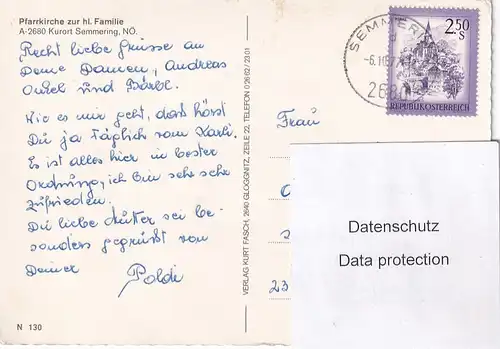 Pfarrkirche zur hl. Familie
A-2680 Kurort Semmering, NÖ.
Recht liebe Grüsse an
Deine Damen, Andreas
Onkel und Bärbl.
Wie es mir geht, das hörst
Du ja täglich vom Karli.
Es ist alles hier in bester
Ordnung, ich bin sehr sehr
zufrieden.
Du liebe Mutter sei be-
sonders gegrüsst von
Deiner Poldi
N 130
VERLAG KURT FASCH, 2640 GLOGGNITZ, ZEILE 22, TELEFON 0 26 62 / 23 01
SEMMERING
2680
2.50
S
REPUBLIK ÖSTERREICH
Frau
23
Datenschutz
Data protection